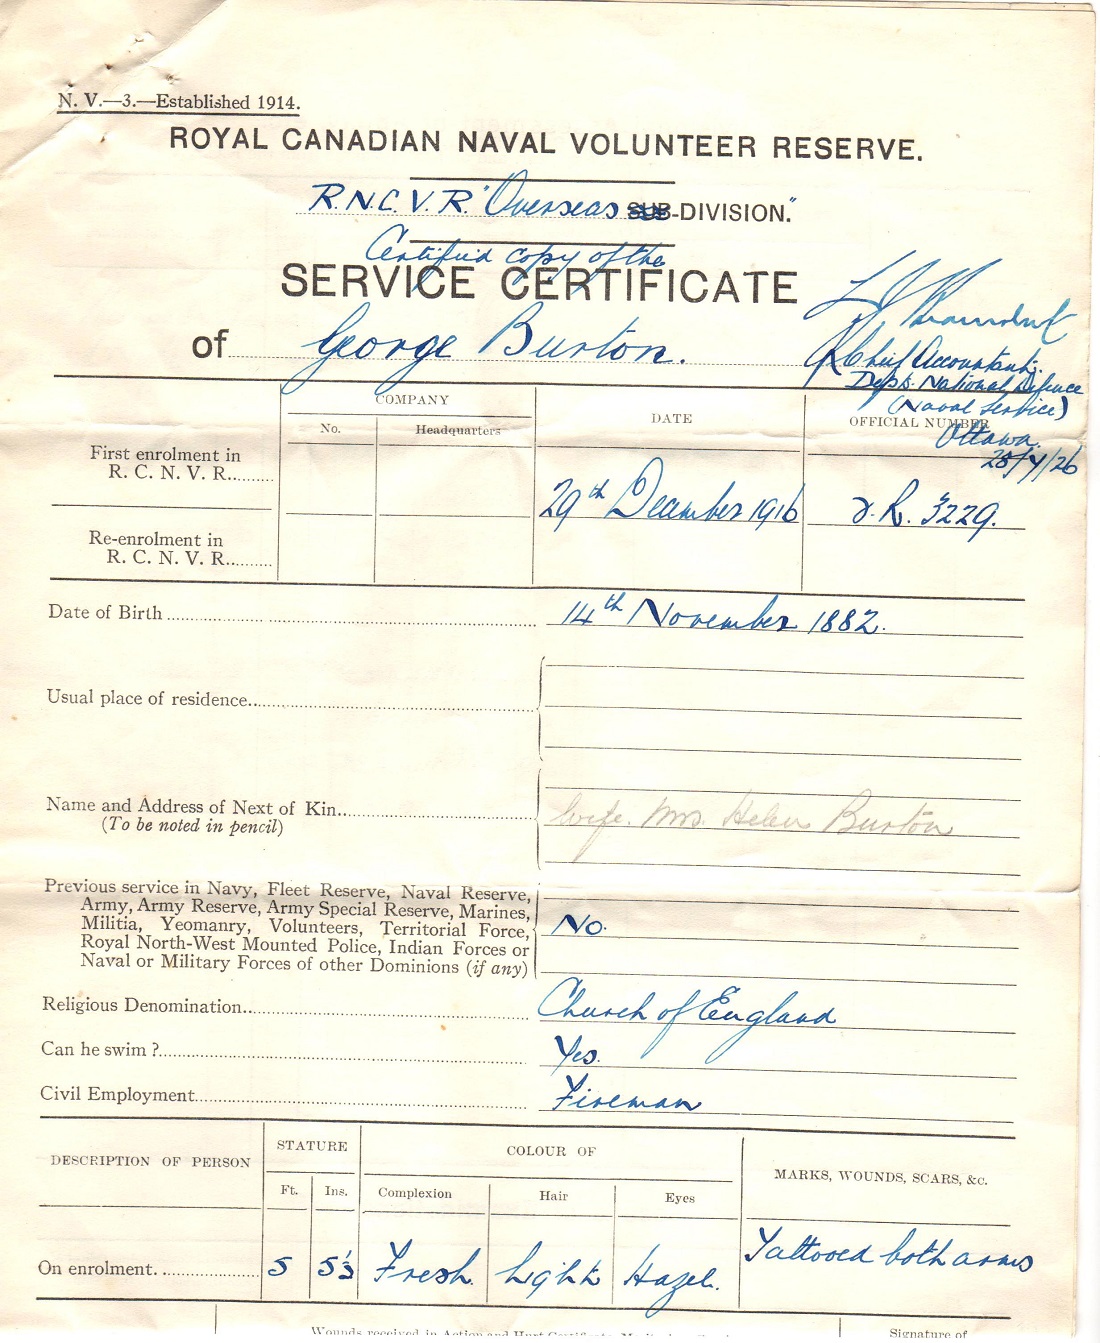 N. V.—3.—Established 1914.
ROYAL CANADIAN NAVAL VOLUNTEER RESERVE.
R.N.C.V.R. "Overseas SUB-DIVISION."
Certified copy of the
SERVICE CERTIFICATE
of George Burton.
Chief Accountant.
Dept. National Defence
(Naval Service)
Ottawa.
COMPANY
DATE
OFFICIAL NUMBER
No.
Headquarters
First enrolment in
R. C. N. V. R.
29th December 1916
V.R. 3229.
Re-enrolment in
R. C. N. V. R.
Date of Birth 14th November 1882.
Usual place of residence
Name and Address of Next of Kin
(To be noted in pencil)
Wife. Mrs. Helen Burton
Previous service in Navy, Fleet Reserve, Naval Reserve,
Army, Army Reserve, Army Special Reserve, Marines,
Militia, Yeomanry, Volunteers, Territorial Force,
Royal North-West Mounted Police, Indian Forces or
Naval or Military Forces of other Dominions (if any)
No.
Religious Denomination Church of England
Can he swim ? Yes.
Civil Employment Fireman
DESCRIPTION OF PERSON
STATURE
COLOUR OF
MARKS, WOUNDS, SCARS, &c.
Ft. Ins. Complexion Hair Eyes
On enrolment. 5 5½ Fresh. Light Hazel. Tattooed both arms
Signature of